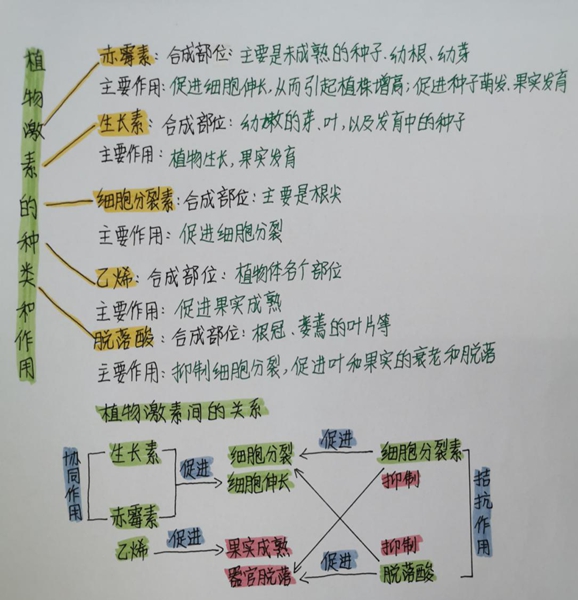 植物激素的种类和作用
赤霉素：合成部位：主要是未成熟的种子、幼根、幼芽
主要作用：促进细胞伸长，从而引起植株增高；促进种子萌发、果实发育
生长素：合成部位：幼嫩的芽、叶，以及发育中的种子
主要作用：植物生长，果实发育
细胞分裂素：合成部位：主要是根尖
主要作用：促进细胞分裂
乙烯：合成部位：植物体各个部位
主要作用：促进果实成熟
脱落酸：合成部位：根冠、萎蔫的叶片等
主要作用：抑制细胞分裂，促进叶和果实的衰老和脱落
植物激素间的关系
协同作用
生长素
赤霉素
促进
细胞分裂
细胞伸长
促进
细胞分裂素
抑制
拮抗作用
乙烯
促进
果实成熟
器官脱落
促进
抑制
脱落酸